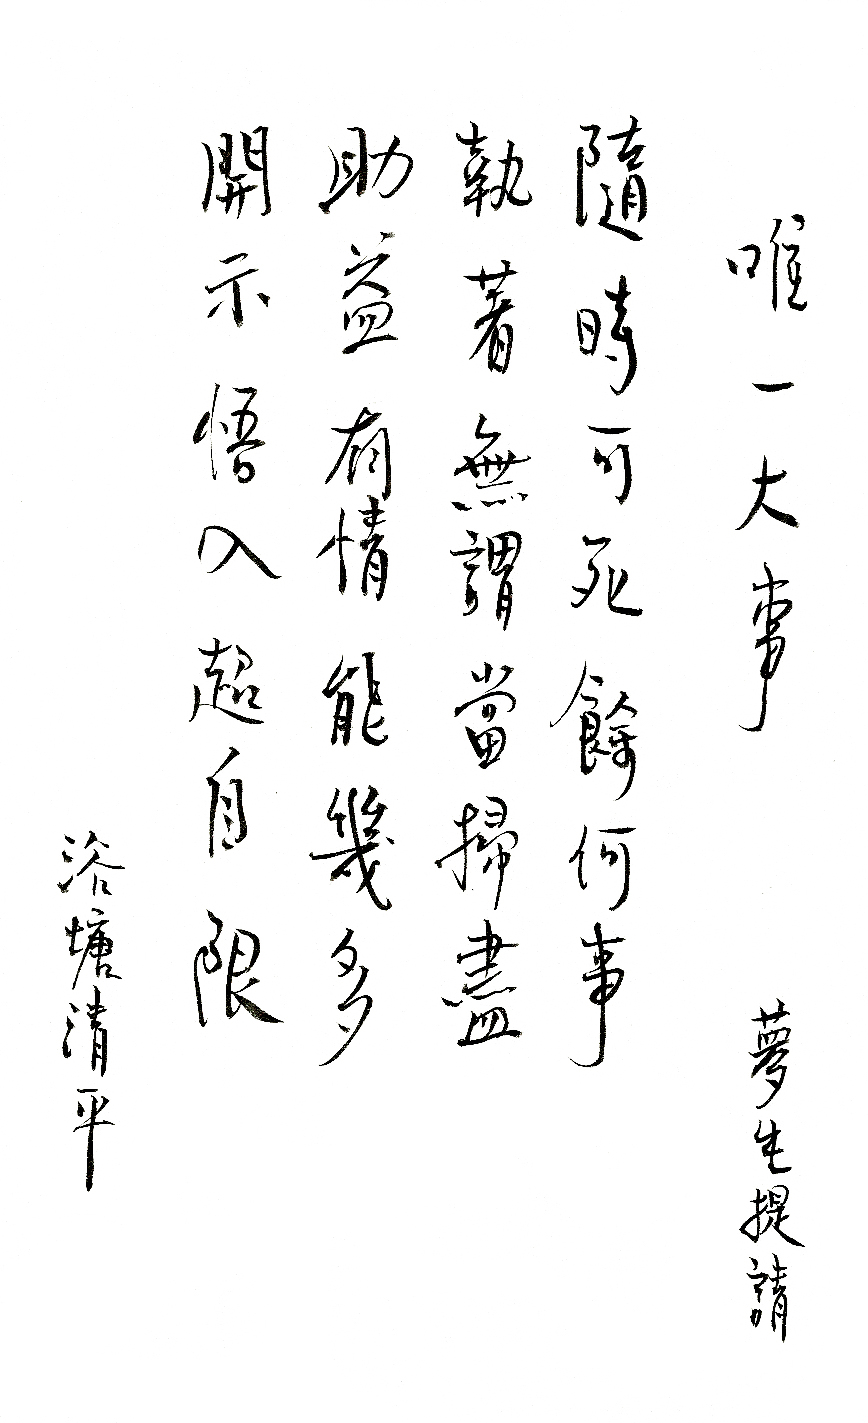 唯一大事
夢生提請
隨時可死餘何事
執著無謂當掃盡
助益有情能幾多
開示悟入超自限
浴塘清平